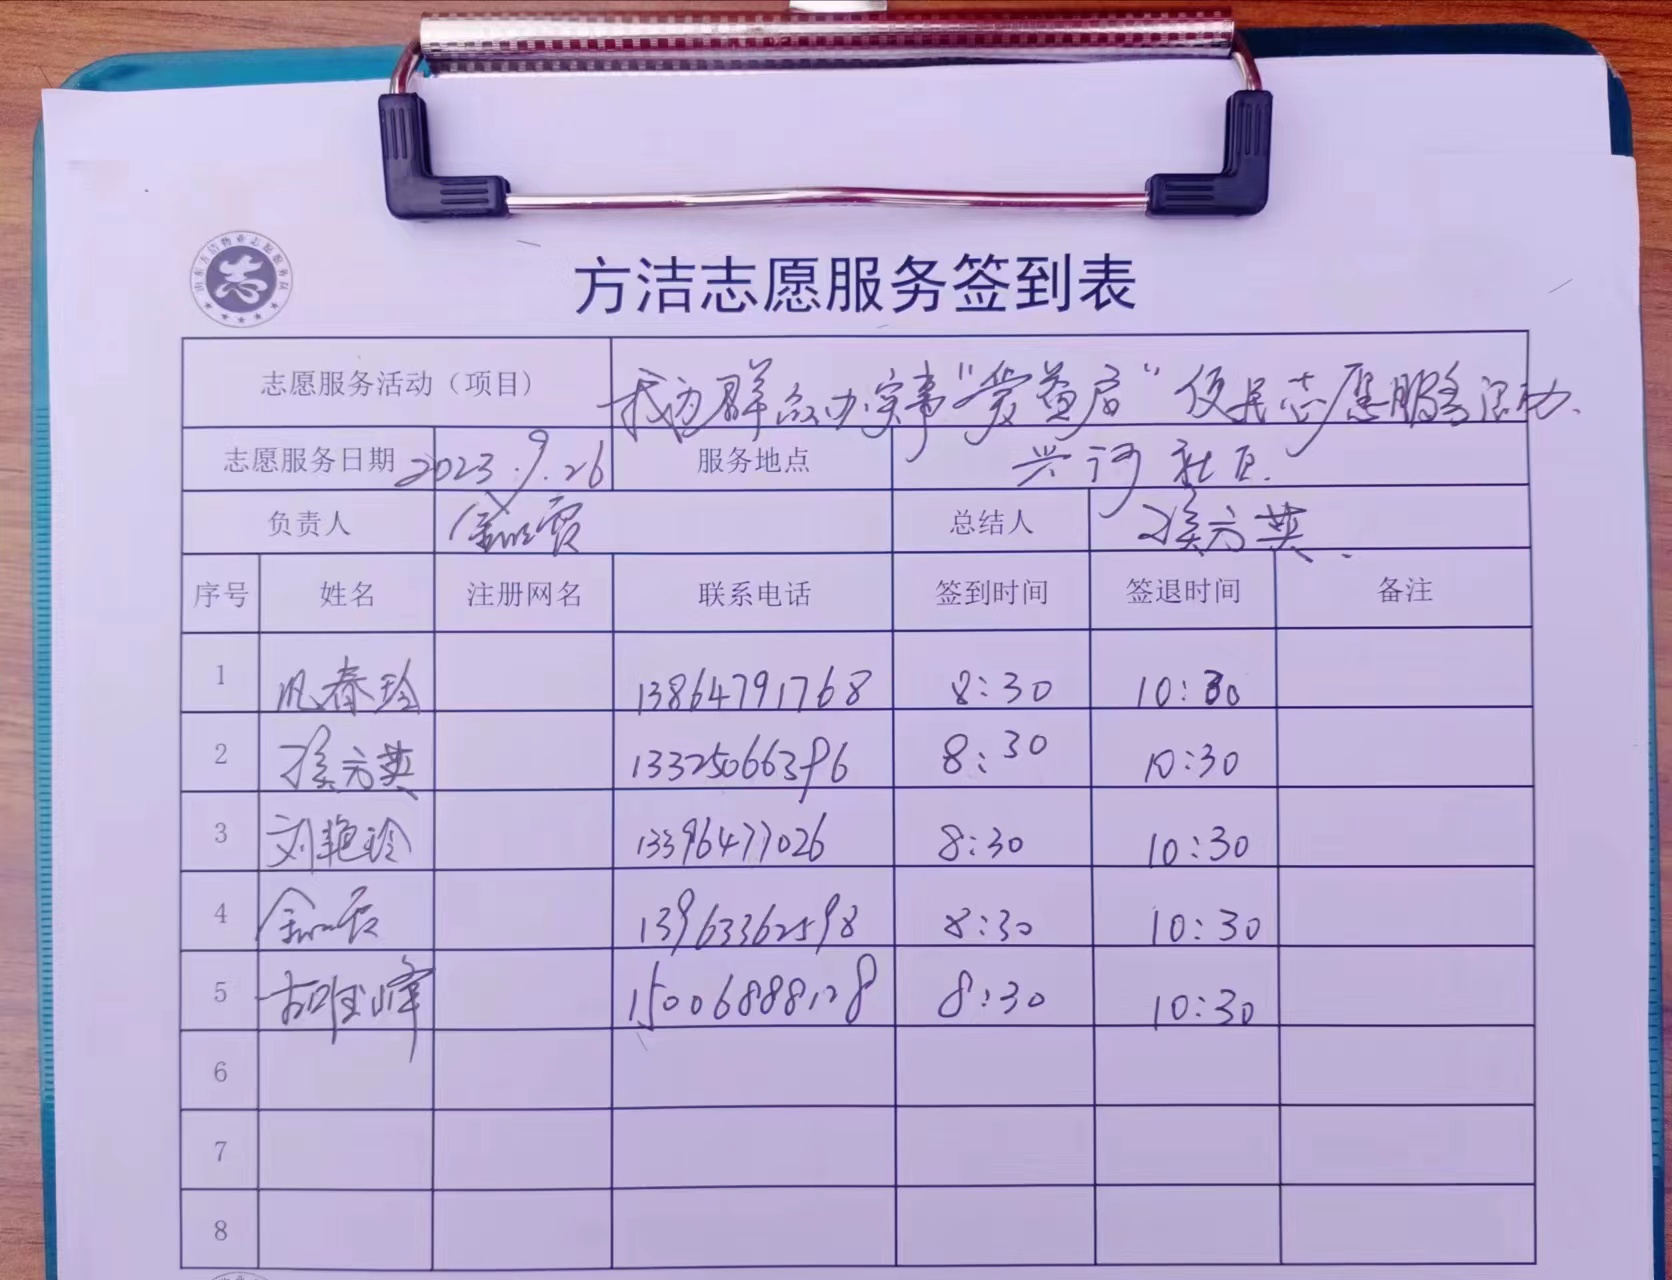 山东方洁物业志愿服务队
志
方洁志愿服务签到表
志愿服务活动（项目） 我为群众办实事“爱益启”便民志愿服务活动.
志愿服务日期 2023.9.26 服务地点 兴河社区.
负责人 总结人 侯方英.
序号 姓名 注册网名 联系电话 签到时间 签退时间 备注
1 春玲 13864791768 8:30 10:30
2 侯方英 13325066396 8:30 10:30
3 刘艳玲 13396477026 8:30 10:30
4 13963362598 8:30 10:30
5 峰 15006888128 8:30 10:30
6
7
8